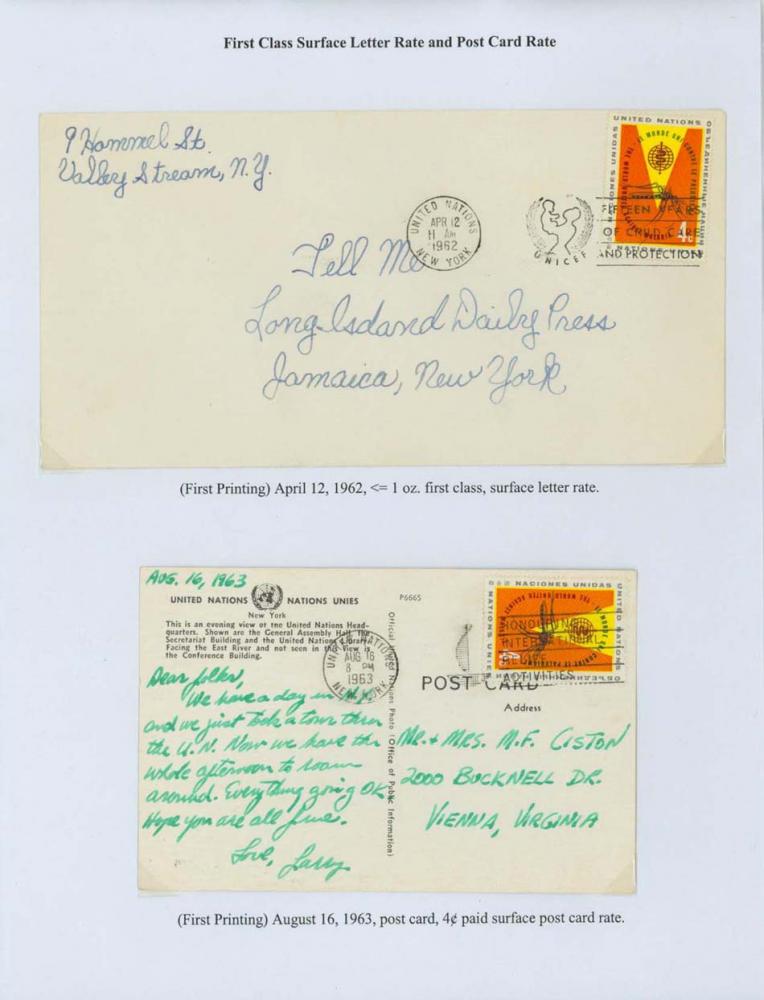 First Class Surface Letter Rate and Post Card Rate
9 Hammel St.
Valley Stream, N.Y.
UNITED NATIONS
NEW YORK
APR 12
11 AM
1962
UNICEF
FIFTEEN YEARS
OF CHILD CARE
AND PROTECTION
UNITED NATIONS
4c
Tell Me
Long Island Daily Press
Jamaica, New York
(First Printing) April 12, 1962, <= 1 oz. first class, surface letter rate.
AUG. 16, 1963
UNITED NATIONS NATIONS UNIES
New York
This is an evening view of the United Nations Head-
quarters. Shown are the General Assembly Hall, the
Secretariat Building and the United Nations Library.
Facing the East River and not seen in this view is
the Conference Building.
P6665
Official United Nations Photo (Office of Public Information)
UNITED NATIONS
NEW YORK
AUG 16
8 PM
1963
NACIONES UNIDAS
HONOURING
INTERNATIONAL
RELIEF
ACTIVITIES
POST CARD
Address
Dear folks,
We have a day in N.Y.
and we just took a tour thru
the U.N. Now we have the
whole afternoon to roam
around. Everything going OK
Hope you are all fine.
Love, Larry
MR. + MRS. M.F. CISTON
2000 BUCKNELL DR.
VIENNA, VIRGINIA
(First Printing) August 16, 1963, post card, 4¢ paid surface post card rate.